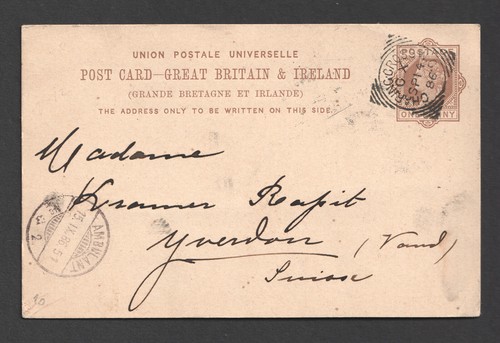 UNION POSTALE UNIVERSELLE
POST CARD—GREAT BRITAIN & IRELAND
(GRANDE BRETAGNE ET IRLANDE)
THE ADDRESS ONLY TO BE WRITTEN ON THIS SIDE.
CHARING CROSS
SP 14
86
ONE PENNY
Madame
Kramer Rapit
Yverdon (Vaud)
Suisse
AMBULANT
15.IX.86